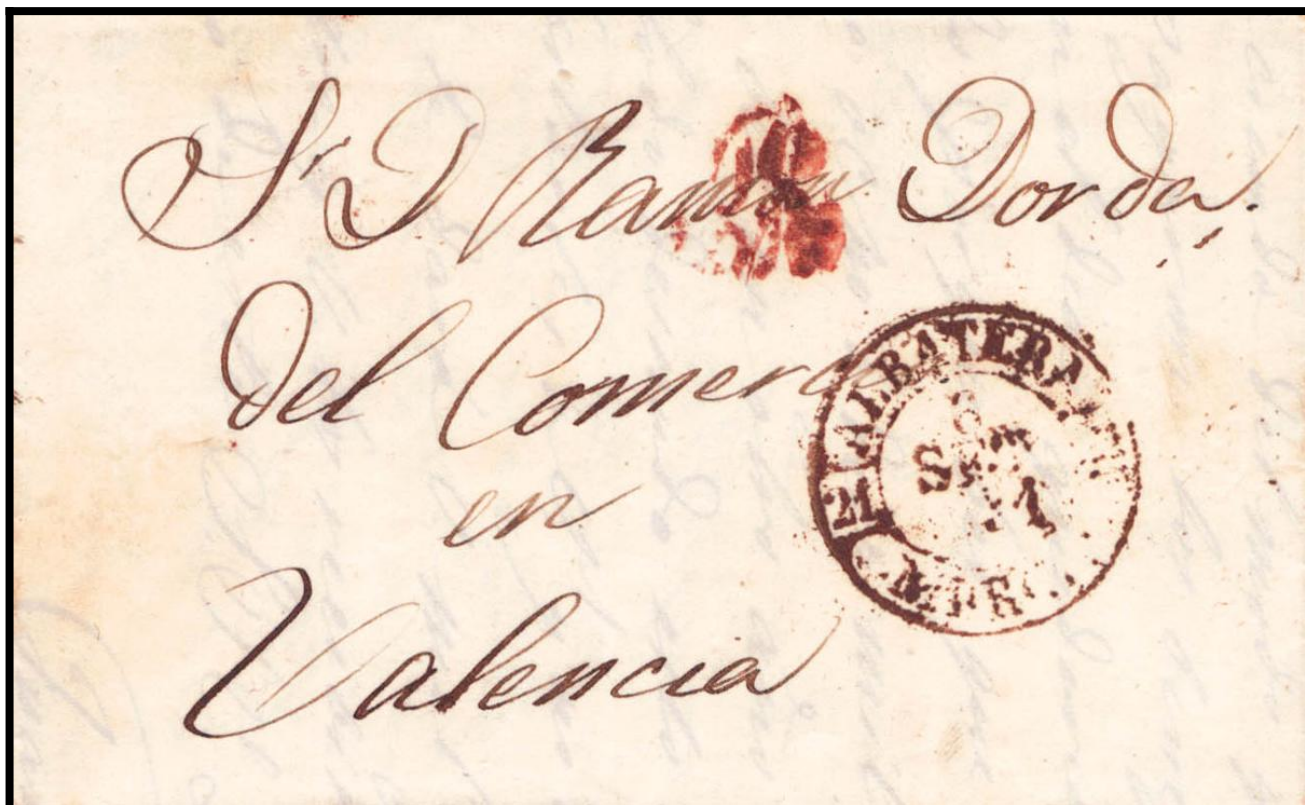 Sr D Ramon Dorda.
del Comercio
en
Valencia
ALBATERA
21